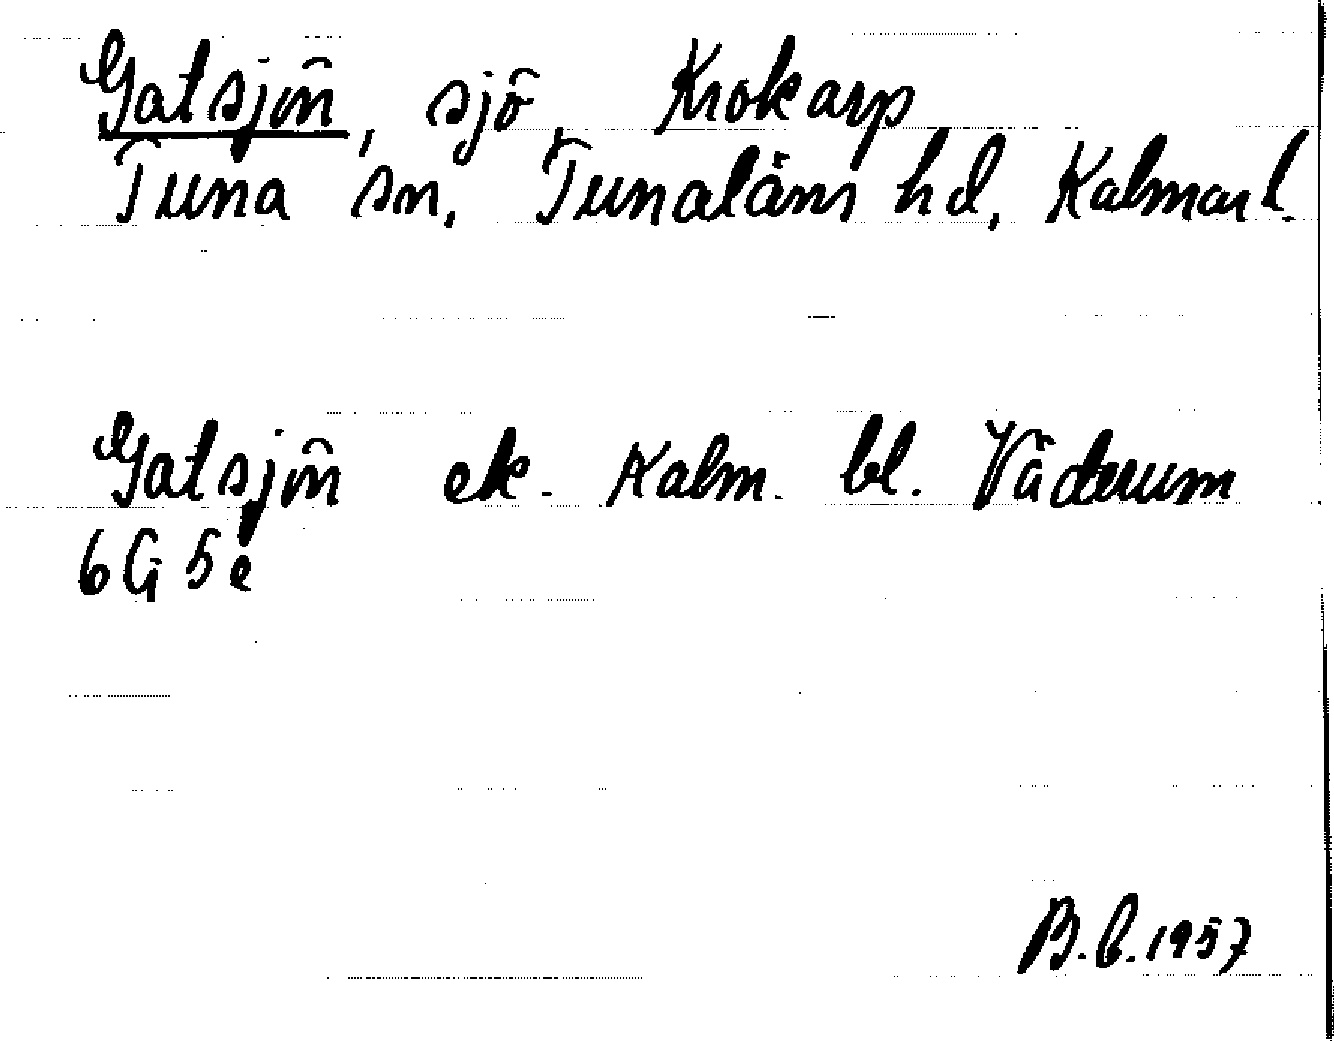 Gatsjön, sjö, Krokarp
Tuna sn, Tunaläns hd, Kalmar l.
Gatsjön ek. Kalm. bl. Väderum
6G 5e
B.L.1957